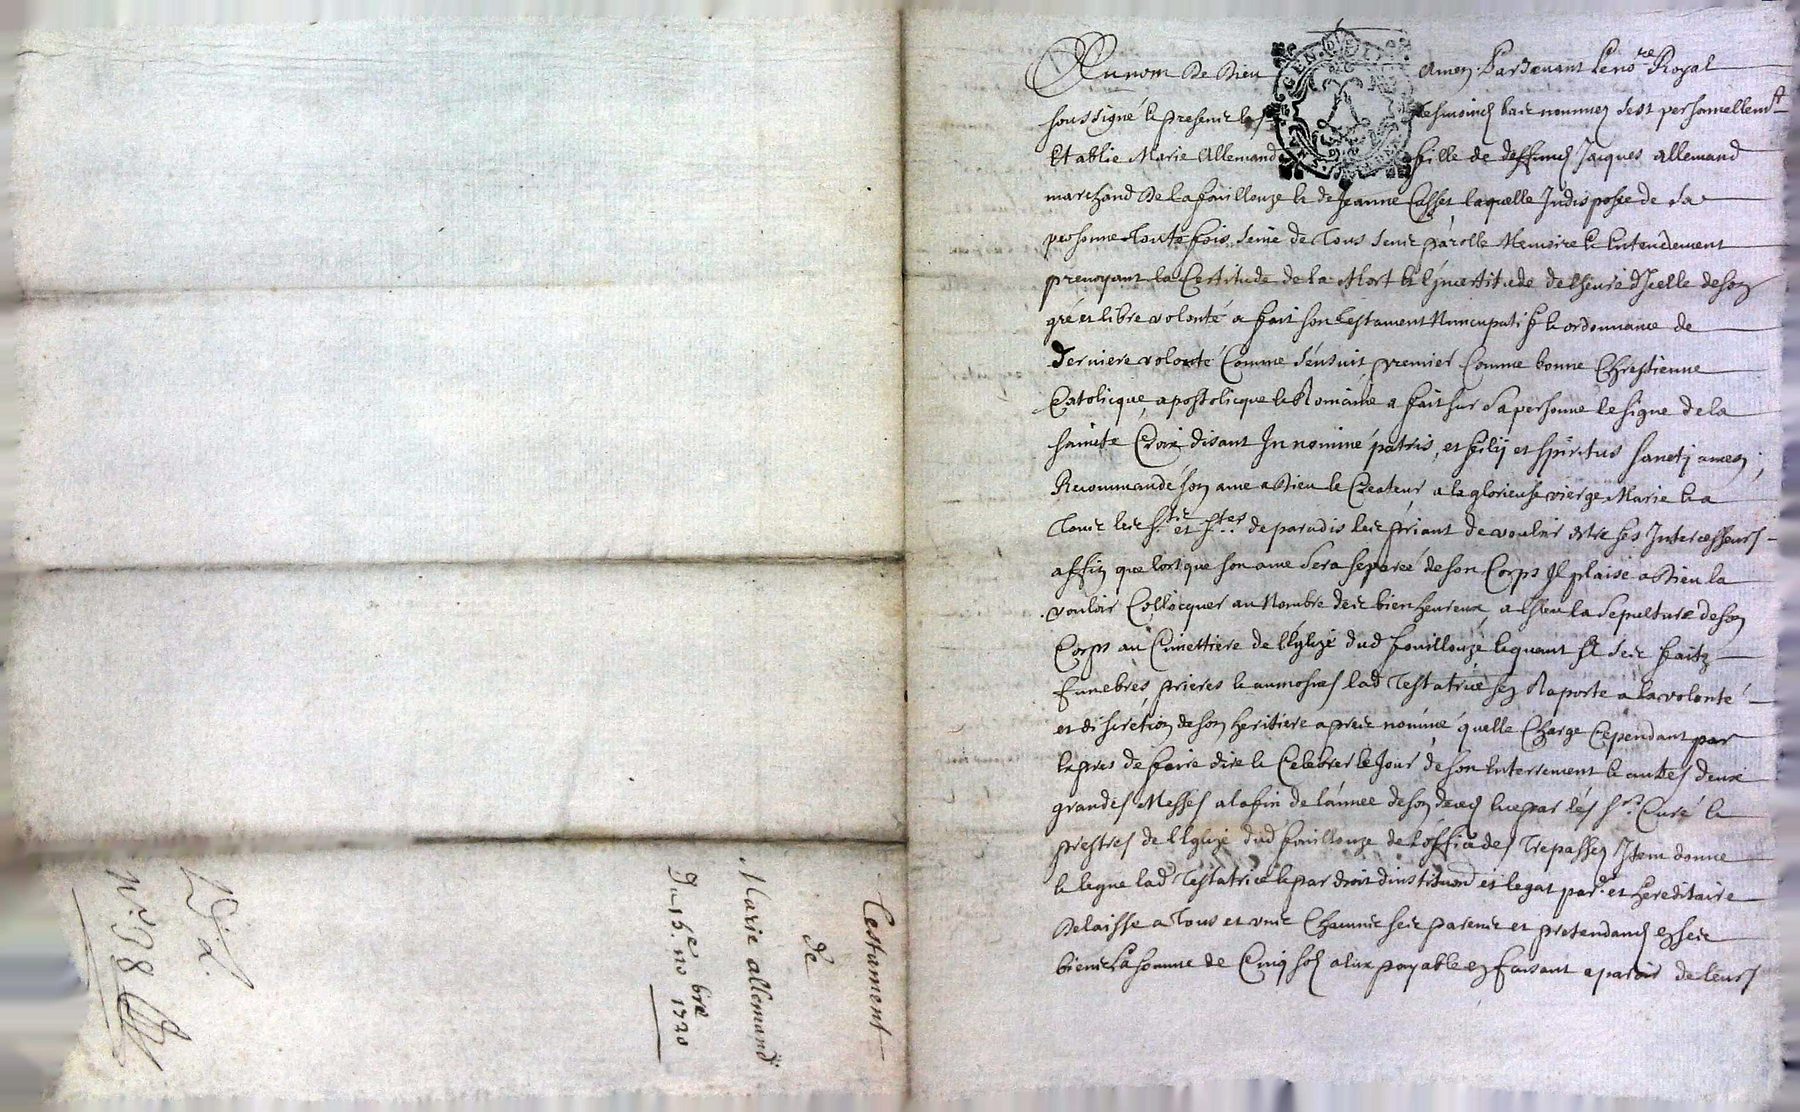 Testament
de
Marie allemand
Du 15.e nobre 1720
L. 2.
Nº. 38
Au nom De Dieu Amen. Pardevant Le nore Royal
soussigné & presents les tesmoings bas nommez sest personellemt
Establie Marie Allemand fille de deffunct Jacques allemand
marchand De la fouillouze & de Jeanne Casset laquelle Indisposée de sa
personne Toutefois seine de Tous sens parolle Memoire & Entendement
prevoyant la Certitude de la Mort & l'Incertitude de l'heure d'Icelle de son
gré et libre volonté a fait son testament Nuncupatif & ordonnance de
Derniere volonté Comme sensuit premier Comme bonne Chrestienne
Catolicque apostolicque & Romaine a fait sur sa personne le signe de la
sainte Croix disant In nominé patris, et filij et spiritus sanctj amen,
Recommandé son ame a Dieu le Createur a la glorieuse vierge Marie & a
Tous les sts et stes de paradis les priant de vouloir estre ses Intercesseurs
affin que lorsque son ame sera separée de son Corps Il plaise a Dieu la
vouloir Collocquer au Nombre des bienheureux, a Esleu la sepulture de son
Corps au Cimettiere de l'Eglize dud fouillouze & quant a ses faitz
funebres prieres & aumosnes lad Testatrice sen Raporte a la volonté
et discretion de son heritiere apres nommé quelle Charge Cependant par
Expres de faire dire & Celebrer le Jour de son Enterrement & autres deux
grandes Messes a la fin de l'année de son deces & par les srs Curé &
prestres de l'Eglize dud fouillouze de l'office des Trepassez Item donne
& legue lad Testatrice & par droit d'institution et legat par. et hereditaire
Delaisse a Tous et uns Chacuns ses parens et pretendants en ses
biens La somme de Cinq sols a eux payable en faisant aparoir de leurs